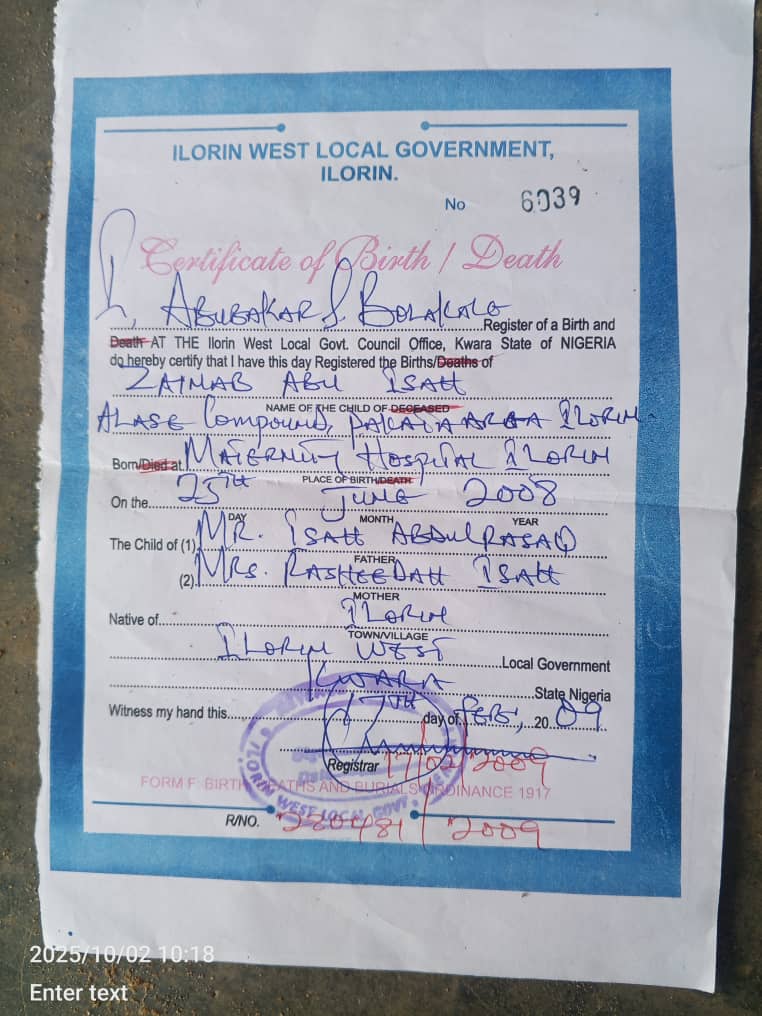 ILORIN WEST LOCAL GOVERNMENT,
ILORIN.
No 6039
Certificate of Birth / Death
I, ABUBAKAR S. BOLAKALE Register of a Birth and
Death AT THE Ilorin West Local Govt. Council Office, Kwara State of NIGERIA
do hereby certify that I have this day Registered the Births/Deaths of
ZAINAB ABU ISAH
NAME OF THE CHILD OF DECEASED
ALASE Compound, PAKATA AREA ILORIN
Born/Died at MATERNITY HOSPITAL ILORIN
PLACE OF BIRTH/DEATH
On the 25TH JUNE 2008
DAY MONTH YEAR
The Child of (1) MR. ISAH ABDULRASAQ
FATHER
(2) MRS. RASHEEDAH ISAH
MOTHER
Native of ILORIN
TOWN/VILLAGE
ILORIN WEST Local Government
KWARA State Nigeria
Witness my hand this 17TH day of FEB, 2009
Registrar 17/02/2009
FORM F: BIRTH DEATHS AND BURIALS ORDINANCE 1917
ILORIN WEST LOCAL GOVT.
R/NO. 220481/2009
2025/10/02 10:18
Enter text